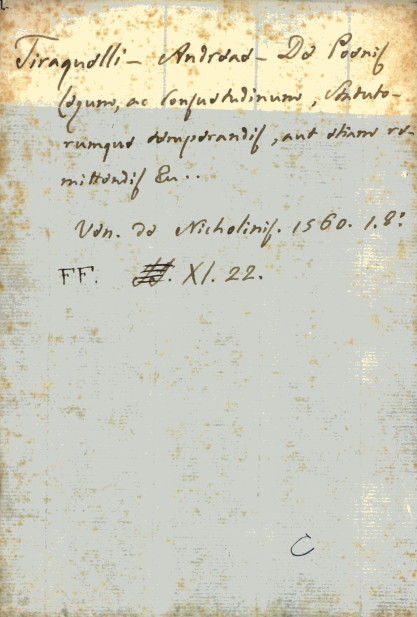 Tiraquelli - Andreae - De Poenis
Legum, ac Consuetudinum, Statuto-
rumque temperandis, aut etiam re-
mittendis Eu..
Ven. de Nicholinis. 1560. 1. 8.º
FF. XI. 22.
C